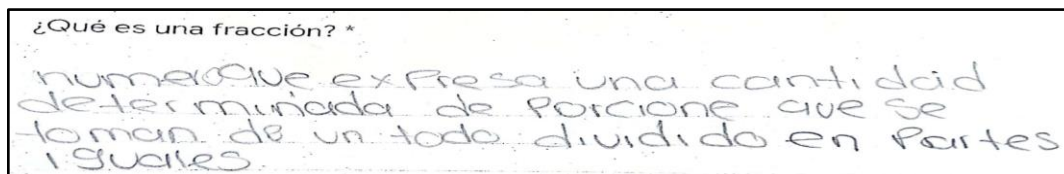 ¿Qué es una fracción? *
numero que expresa una cantidad
determinada de porcione que se
toman de un todo dividido en Partes
iguales